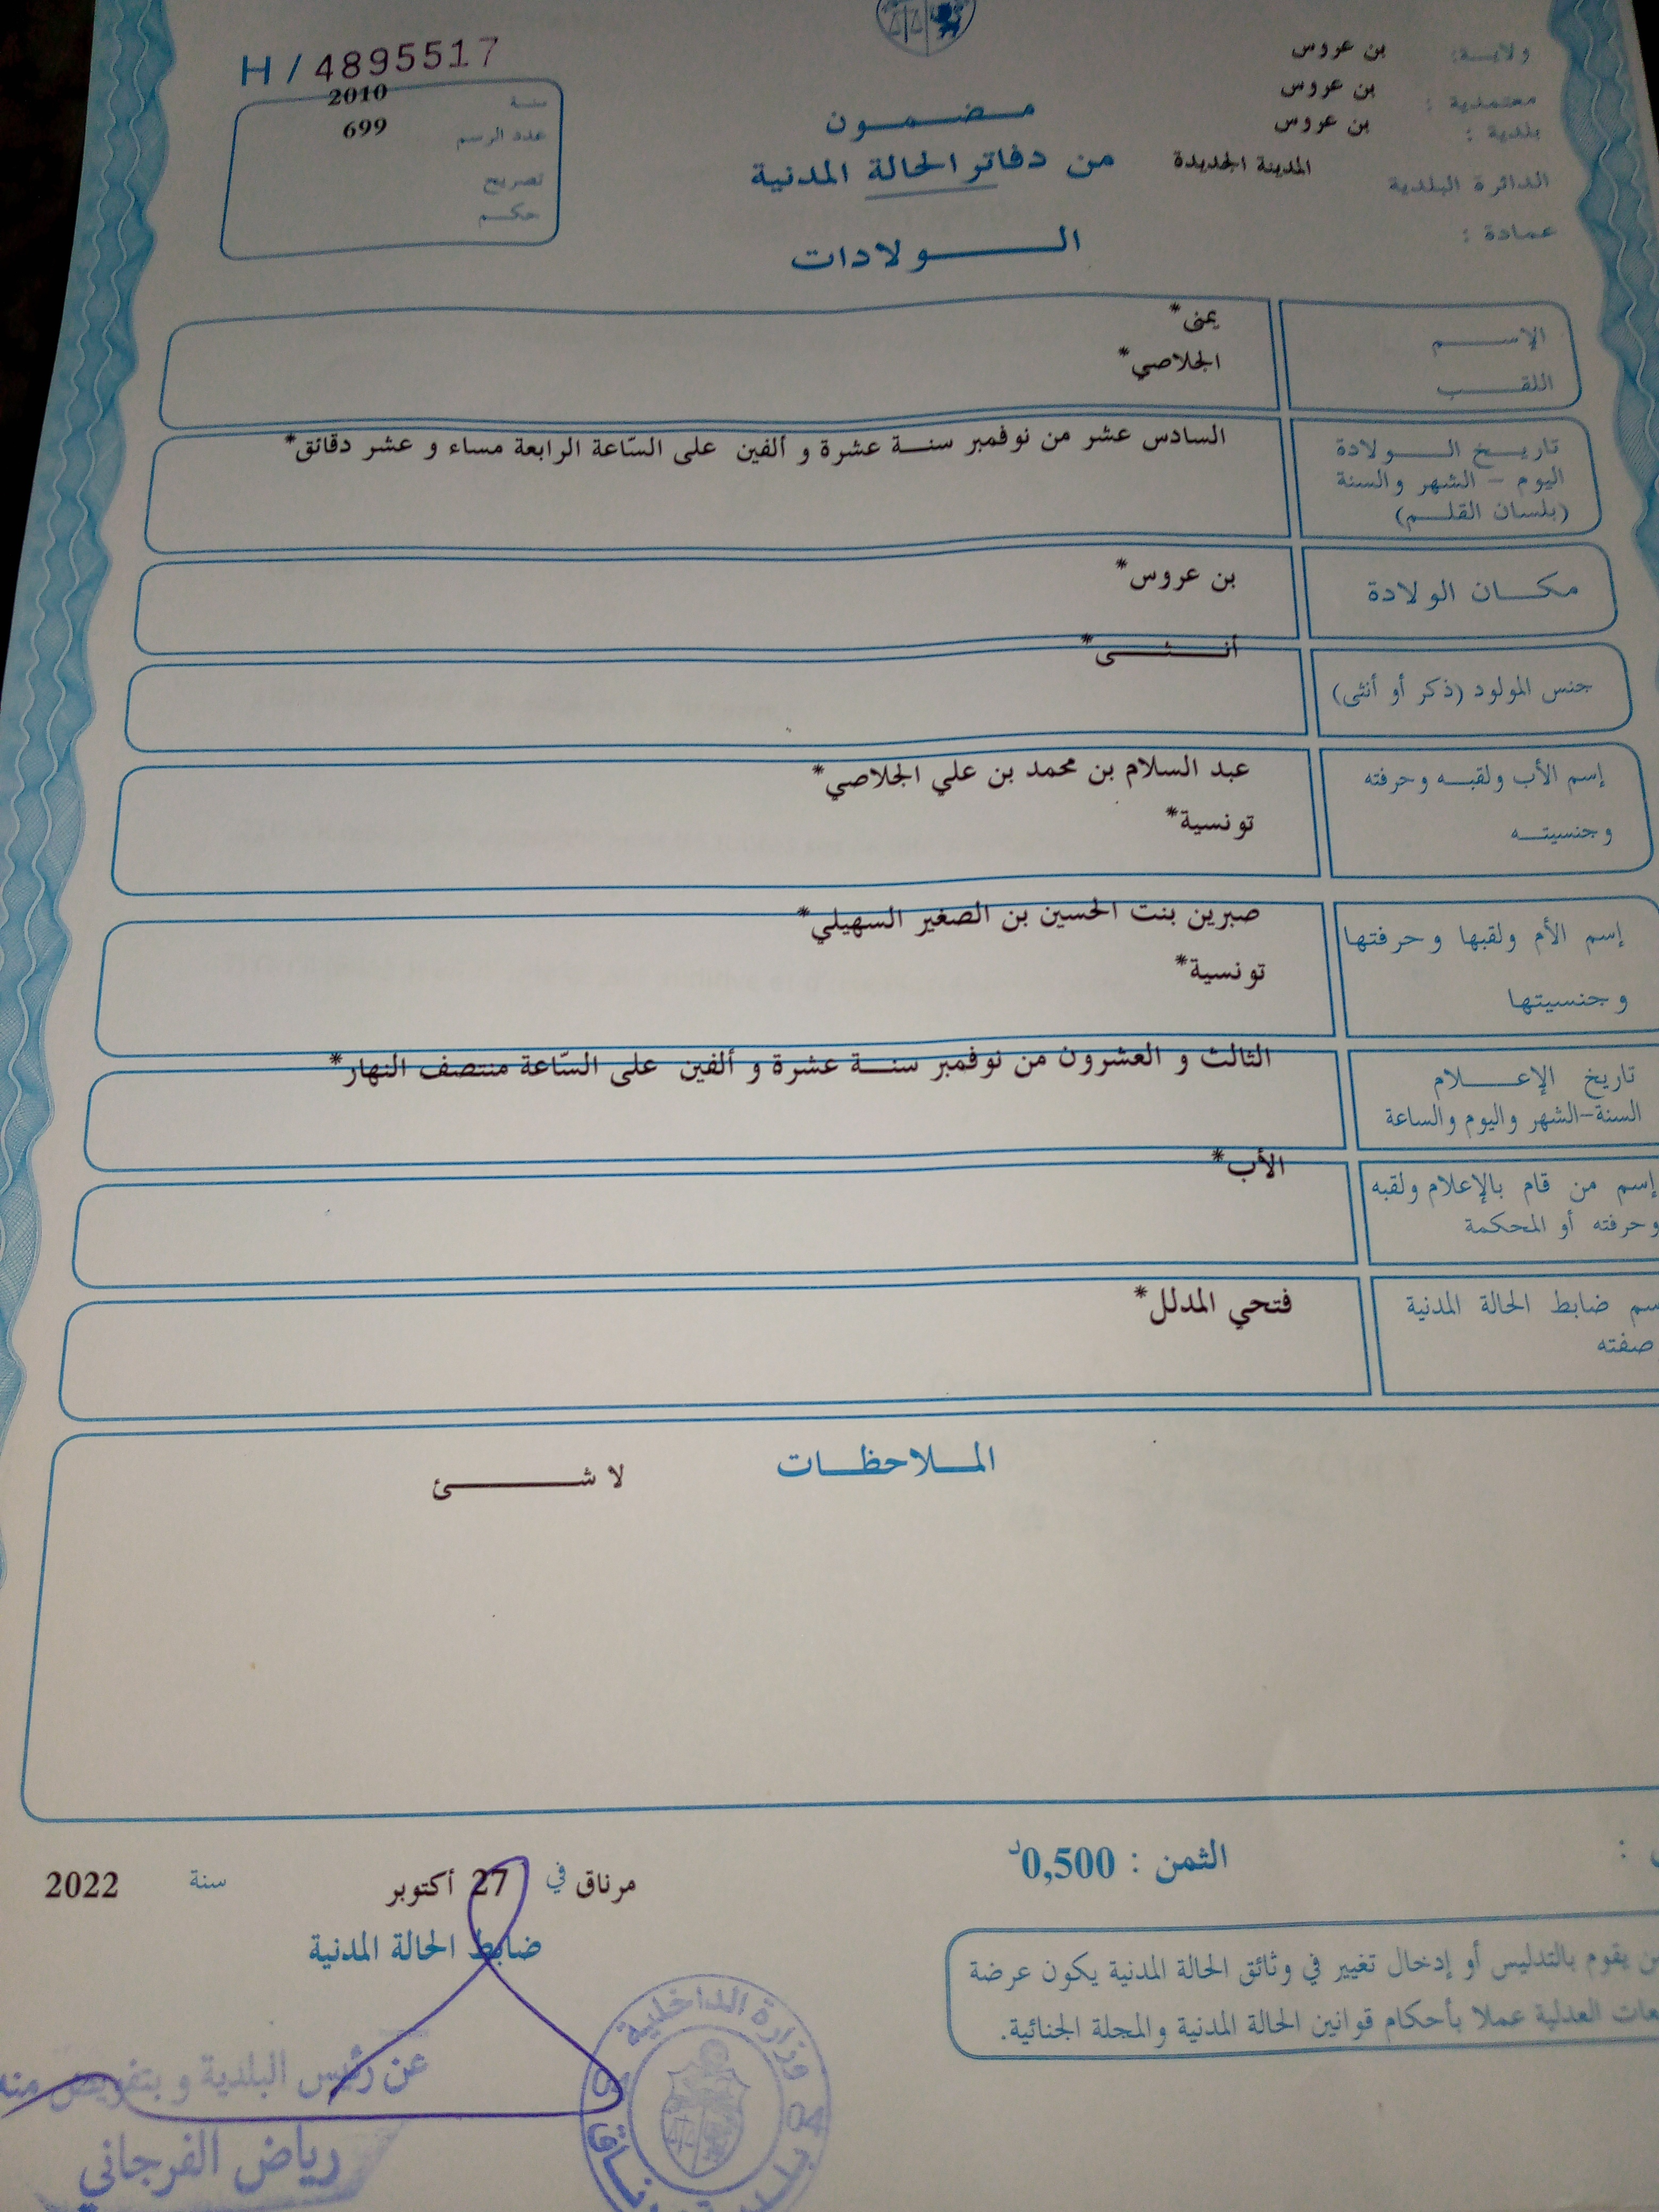 ولاية: بن عروس
معتمدية : بن عروس
بلدية : بن عروس
الدائرة البلدية المدينة الجديدة
عمادة :
مضمون
من دفاتر الحالة المدنية
الولادات
H / 4895517
سنة 2010
عدد الرسم 699
تصريح
حكم
الإسم يمنى*
اللقب الجلاصي*
تاريخ الولادة السادس عشر من نوفمبر سنة عشرة و ألفين على السّاعة الرابعة مساء و عشر دقائق*
اليوم – الشهر والسنة
(بلسان القلم)
مكان الولادة بن عروس*
جنس المولود (ذكر أو أنثى) أنثى*
إسم الأب ولقبه وحرفته عبد السلام بن محمد بن علي الجلاصي*
وجنسيته تونسية*
إسم الأم ولقبها وحرفتها صبرين بنت الحسين بن الصغير السهيلي*
وجنسيتها تونسية*
تاريخ الإعلام الثالث و العشرون من نوفمبر سنة عشرة و ألفين على السّاعة منتصف النهار*
السنة-الشهر واليوم والساعة
إسم من قام بالإعلام ولقبه الأب*
وحرفته أو المحكمة
سم ضابط الحالة المدنية فتحي المدلل*
صفته
الملاحظات
لا شئ
الثمن : 0,500د
مرناق في 27 أكتوبر سنة 2022
ضابط الحالة المدنية
ن يقوم بالتدليس أو إدخال تغيير في وثائق الحالة المدنية يكون عرضة
عات العدلية عملا بأحكام قوانين الحالة المدنية والمجلة الجنائية.
عن رئيس البلدية و بتفويض منه
رياض الفرجاني
وزارة الداخلية
04
بلدية مرناق